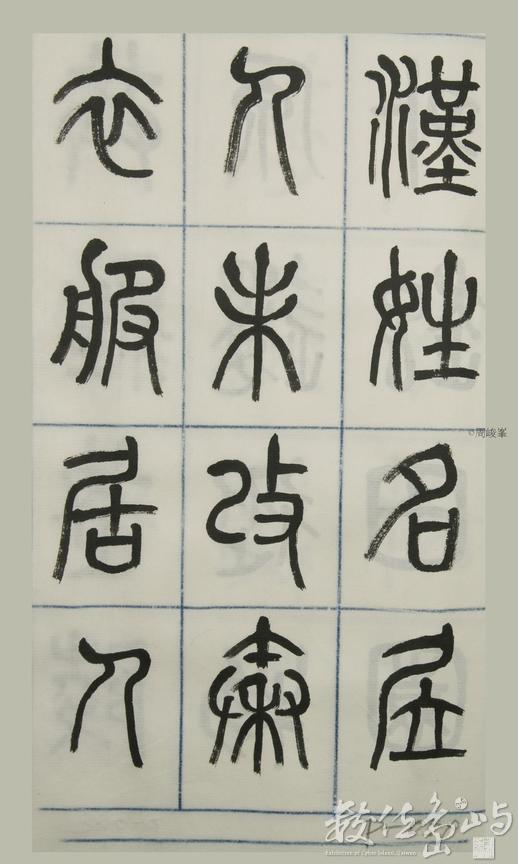 漢姓名居
人未改秦
衣服居人
數位島嶼
Exhibition of Cyber Island, Taiwan